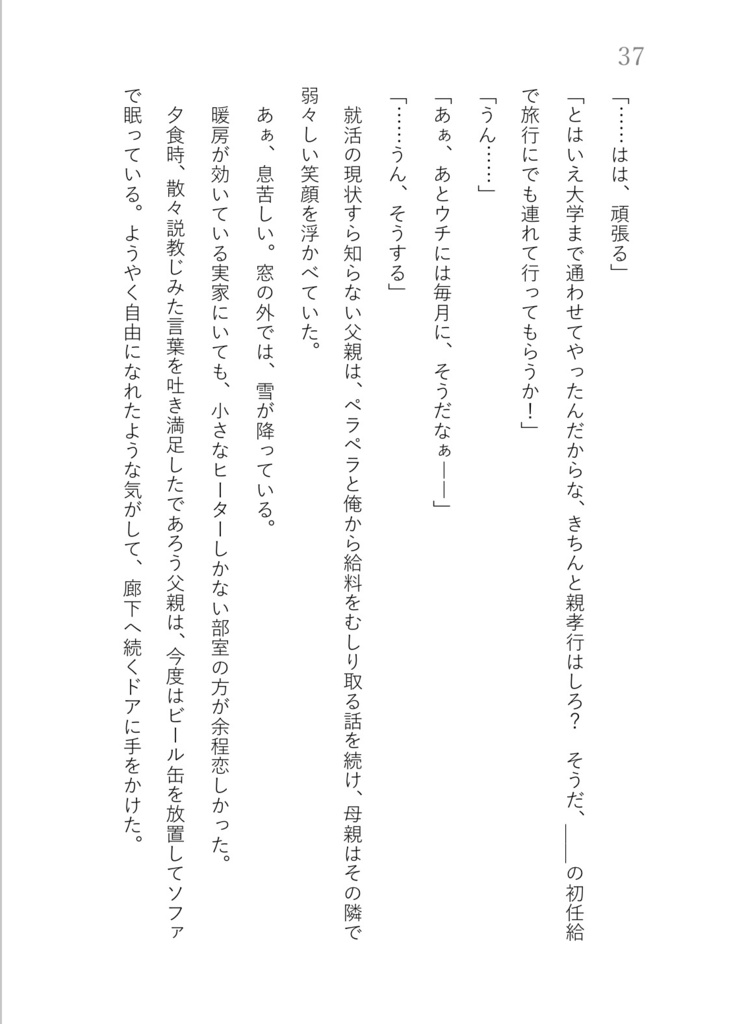 37
「……はは、頑張る」
「とはいえ大学まで通わせてやったんだからな、きちんと親孝行はしろ？　そうだ、＿＿の初任給
で旅行にでも連れて行ってもらうか！」
「うん……」
「あぁ、あとウチには毎月に、そうだなぁ――」
「……うん、そうする」
　就活の現状すら知らない父親は、ペラペラと俺から給料をむしり取る話を続け、母親はその隣で
弱々しい笑顔を浮かべていた。
　あぁ、息苦しい。窓の外では、雪が降っている。
　暖房が効いている実家にいても、小さなヒーターしかない部室の方が余程恋しかった。
　夕食時、散々説教じみた言葉を吐き満足したであろう父親は、今度はビール缶を放置してソファ
で眠っている。ようやく自由になれたような気がして、廊下へ続くドアに手をかけた。